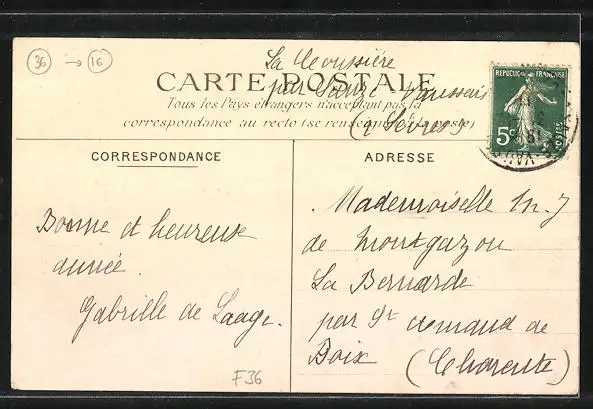 36 → 16
La Coussière
CARTE POSTALE
par Sauzé Vaussais
Tous les Pays étrangers n'acceptent pas la
correspondance au recto (se renseigner à la poste)
(2 Sèvres)
REPUBLIQUE FRANÇAISE
5c
POSTES
CORRESPONDANCE
Bonne et heureuse
année.
Gabrille de Laage.
F36
ADRESSE
Mademoiselle M. J
de Montgazon
La Bernarde
par St Amand de
Boix (Charente)